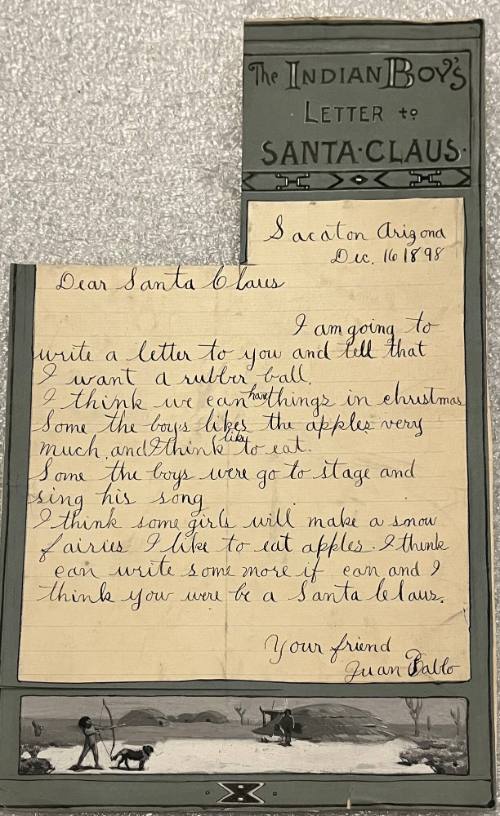 The INDIAN BOY'S
LETTER to
SANTA·CLAUS·
Sacaton Arizona
Dec. 16 1898
Dear Santa Claus
I am going to
write a letter to you and tell that
I want a rubber ball.
I think we can have things in christmas
Some the boys likes the apples very
much and I think they to eat.
Some the boys were go to stage and
sing his song
I think some girls will make a snow
fairies I like to eat apples. I think
can write some more if can and I
think you were be a Santa Claus.
Your friend
Juan Pablo